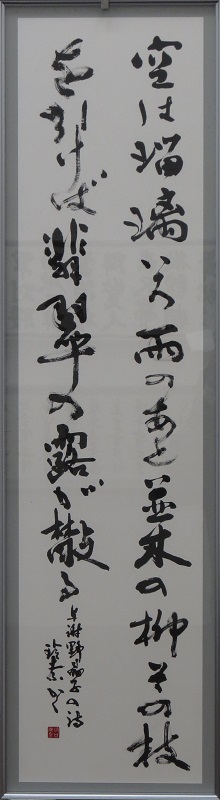 空は瑠璃いろ雨のあと並木の柳その枝
を引けば翡翠の露が散る
与謝野晶子の詩